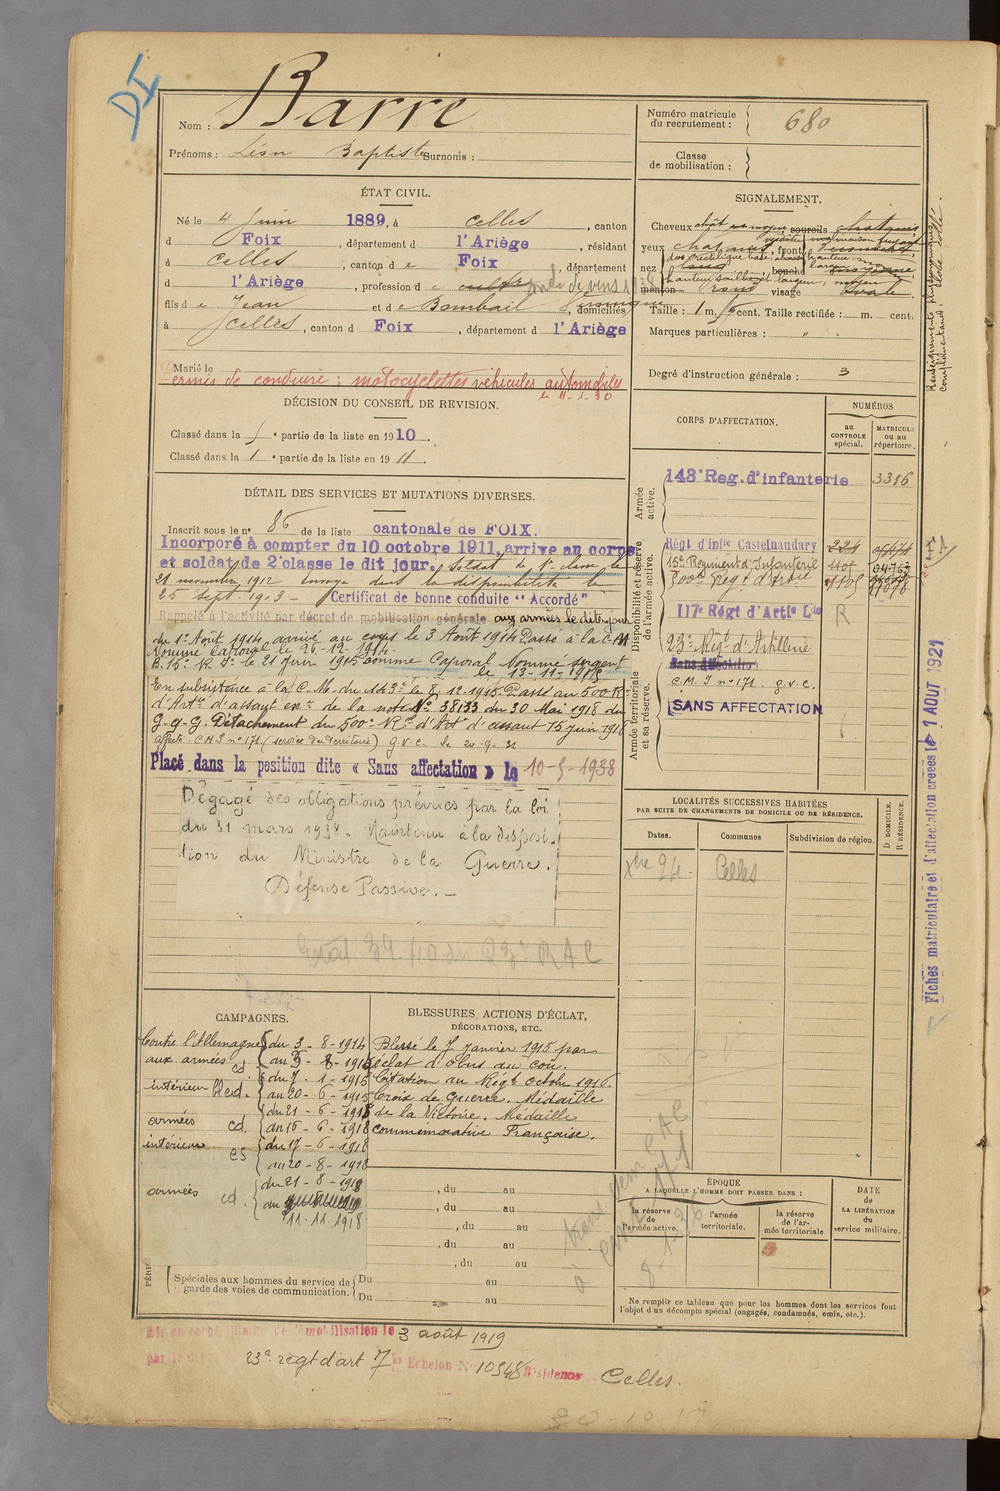 DI
Nom : Barre
Prénoms : Léon Baptiste Surnoms :
Numéro matricule du recrutement : 680
Classe de mobilisation :
ÉTAT CIVIL.
Né le 4 Juin 1889, à Celles, canton
d Foix, département d l'Ariège, résidant
à Celles, canton d e Foix, département
d l'Ariège, profession d e
fils d e Jean et d e Bombail, domiciliés
à Celles, canton d Foix, département d l'Ariège
Marié le
Permis de conduire : motocyclettes véhicules automobiles
SIGNALEMENT.
Cheveux chât sourcils
yeux, front
nez bouche
menton rond visage ovale
Taille : 1 m. cent. Taille rectifiée : m. cent.
Marques particulières :
Degré d'instruction générale : 3
Renseignements physionomiques complémentaires
DÉCISION DU CONSEIL DE REVISION.
Classé dans la partie de la liste en 1910.
Classé dans la 1e partie de la liste en 1911.
DÉTAIL DES SERVICES ET MUTATIONS DIVERSES.
Inscrit sous le n° 86 de la liste cantonale de FOIX.
Incorporé à compter du 10 octobre 1911, arrive au corps
et soldat de 2e classe le dit jour. Soldat de 1e classe le
21 novembre 1912 envoyé dans la disponibilité le
25 Sept. 1913 - Certificat de bonne conduite "Accordé"
Rappelé à l'activité par décret de mobilisation générale aux armées le dit jour
du 1er Août 1914, arrivé au corps le 3 Août 1914. Passé à la C.M
Nommé caporal le 26.12.1914.
B. 15e R. I. le 21 Juin 1915 comme Caporal Nommé sergent
le 13-11-1915
En subsistance à la C.M. du 143e le 8.12.1915. Passé au 500e R.
d'Artie d'assaut exn de la note No 38133 du 30 Mai 1918 du
G.Q.G. Détachement du 500e Rt d'Art d'assaut 15 juin 1918
affecté C.M.I n° 171 (service du territoire) g.v.c. le 20.9.31
Placé dans la position dite « Sans affectation » le 10-5-1938
Dégagé des obligations prévues par la loi
du 31 mars 1928. Maintenu à la disposi-
tion du Ministre de la Guerre.
Défense Passive. -
39.40 du 23e R A C
CORPS D'AFFECTATION.
NUMÉROS
au CONTROLE spécial.
MATRICULE ou au répertoire.
Armée active.
143e Reg. d'infanterie 3316
Disponibilité et réserve de l'armée active.
Régt d'infie Castelnaudary 224
15e Régiment d'Infanterie 1105 04763
500e Régt d'Artie 1105
117e Régt d'Artie Lde R
23e Régt d'Artillerie
Sans affectation
C.M.I n° 171. g.v.c.
Armée territoriale et sa réserve.
SANS AFFECTATION
Fiches matriculaire et d'affectation créées le 1 AOUT 1921
LOCALITÉS SUCCESSIVES HABITÉES
PAR SUITE DE CHANGEMENTS DE DOMICILE OU DE RÉSIDENCE.
Dates. Communes Subdivision de région. D DOMICILE. R RÉSIDENCE.
Xbre 24 - Celles
CAMPAGNES.
Contre l'Allemagne du 3 - 8 - 1914
aux armées cd.
du 7 - 1 - 1915
intérieur bled. au 20 - 6 - 1915
du 21 - 6 - 1915
armées cd. au 16 - 6 - 1918
intérieur cs du 17 - 6 - 1918
au 20 - 8 - 1918
du 21 - 8 - 1918
armées cd. au
11.11.1918
BLESSURES, ACTIONS D'ÉCLAT,
DÉCORATIONS, ETC.
Blessé le 7 janvier 1915 par
éclat d'obus au cou.
Citation au Régt octobre 1916.
Croix de Guerre. Médaille
de la Victoire. Médaille
commémorative Française.
, du au
, du au
, du au
, du au
, du au
Spéciales aux hommes du service de garde des voies de communication.
Du au
Du au
ÉPOQUE
A LAQUELLE L'HOMME DOIT PASSER DANS :
la réserve de l'armée active.
l'armée territoriale.
la réserve de l'armée territoriale
DATE de LA LIBÉRATION du service militaire.
Ne remplir ce tableau que pour les hommes dont les services font
l'objet d'un décompte spécial (engagés, condamnés, omis, etc.).
démobilisation le 3 août 1919
par le 23e régt d'art 7e Echelon N° 10546 Résidence Celles.